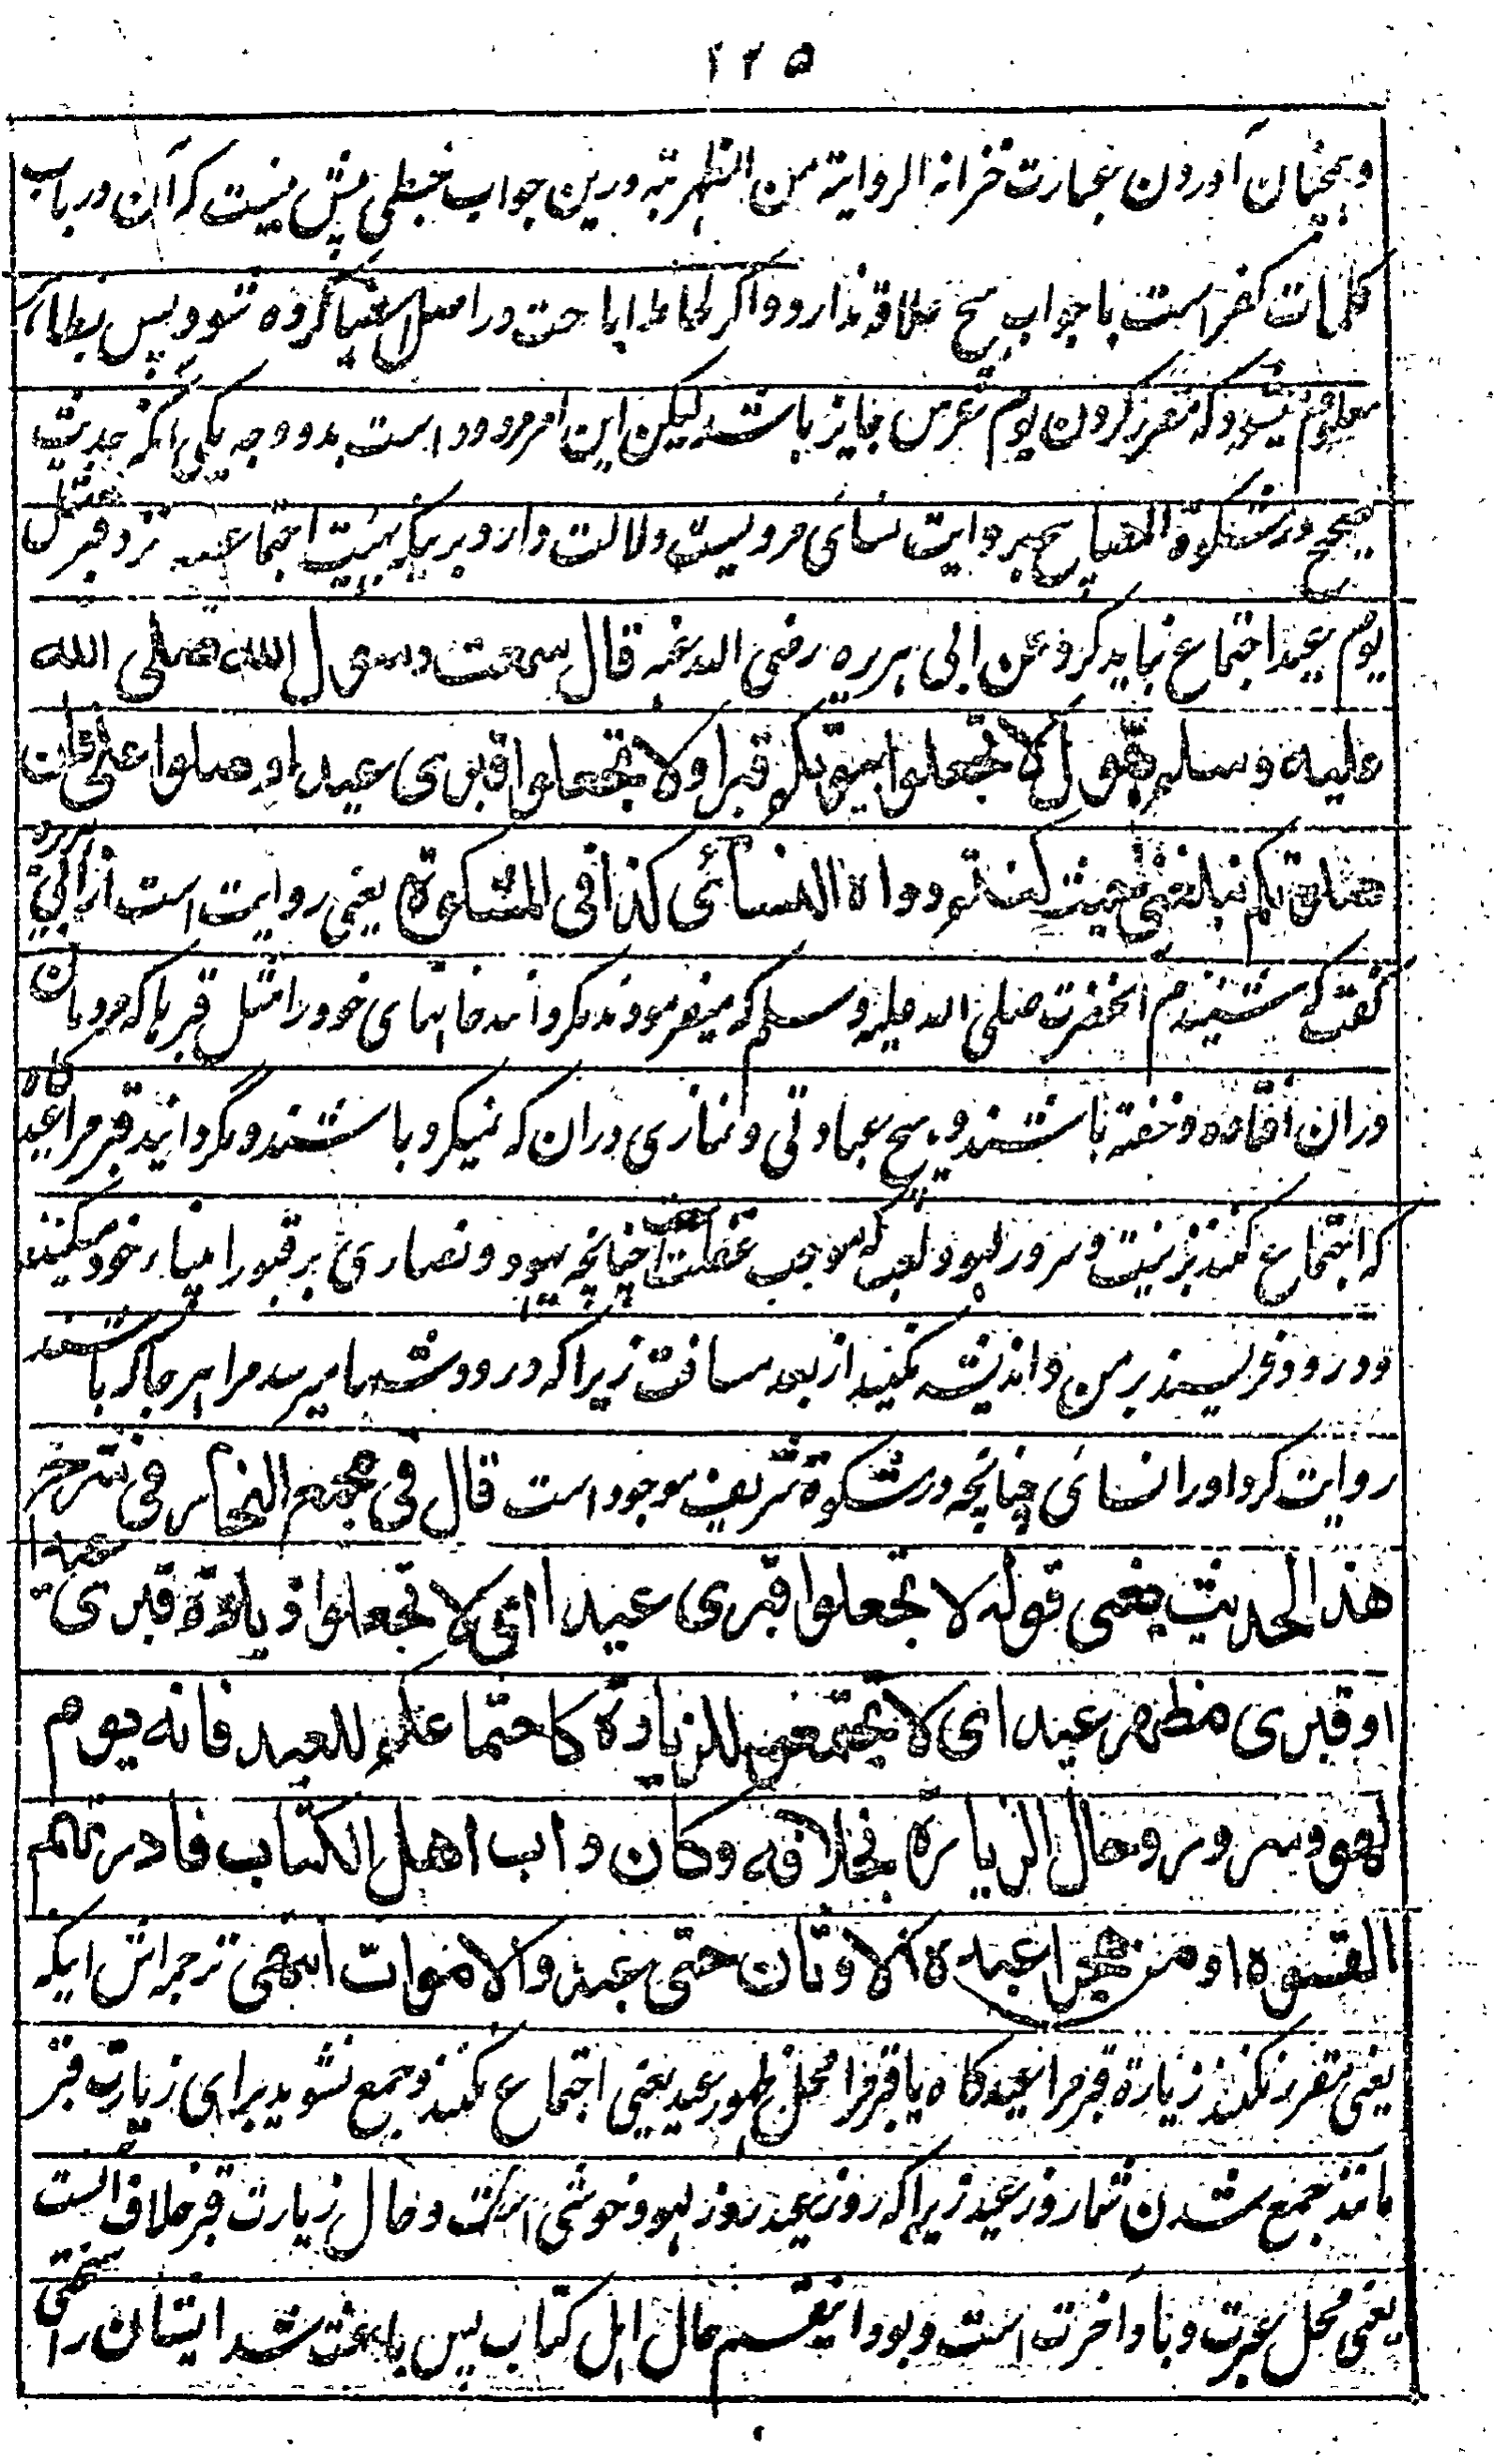 ۲۲۵
و همچنان آوردن عبارت خزانة الروایة من الظهریة درین جواب خبطی بیش نیست که آن در باب
کلمات کفر است با جواب هیچ علاقه ندارد و اگر لحاظ اباحت در اصل اشیا کرده شود پس بظاهر
معلوم میشود که مقرر کردن یوم عرس جایز باشد لیکن این امر مردود است بدو وجه یکی آنکه حدیث
صحیح در مشکوة المصابیح بروایت نسائی مرویست دلالت دارد بریکه بهیئت اجتماعیه نزد قبر مثل
یوم عید اجتماع نباید کرد عن ابی هریره رضی الله عنه قال سمعت رسول الله صلی الله
علیه وسلم یقول لا تجعلوا بیوتکم قبرا ولا تجعلوا قبری عیدا وصلوا علی فان
صلاتکم تبلغنی حیث کنتم رواه النسائی کذا فی المشکوة یعنی روایت است از ابی هریره
گفت که شنیدم آنحضرت صلی الله علیه وسلم که میفرمودند مگردانید خانهای خود را مثل قبرها که مردمان
دران افتاده و خفته باشند و هیچ عبادتی و نمازی دران که نمیکرد باشند و مگردانید قبر مرا عید گاه
که اجتماع کنند بزینت و سرور لهو و لعب که موجب غفلت است چنانچه یهود و نصاری بر قبور انبیاء خود میکنند
و درود فریسند بر من و اندیشه مکنید از بعد مسافت زیرا که درود شما میرسد مرا هر جا که باشند
روایت کرد او را نسائی چنانچه در مشکوة شریف موجود است قال فی مجمع البحار فی شرح
هذا الحدیث یعنی قوله لا تجعلوا قبری عیدا ای لا تجعلوا زیارة قبری عیدا
او قبری مظهر عید ای لا تجتمعوا للزیارة کاجتماعکم للعید فانه یوم
لهو وسرور وحال الزیارة بخلافه وکان داب اهل الکتاب فاورثهم
القسوة او من هجرا عبدة الاوثان حتی عبدوا الاموات انتهی ترجمه اش اینکه
یعنی مقرر نکنند زیارة قبر مرا عیدگاه یا قبر مرا محل ظهور عید یعنی اجتماع نکنند و جمع نشوید برای زیارت قبر
مانند جمع شدن شما روز عید زیرا که روز عید روز لهو و خوشی است و حال زیارت قبر خلاف آنست
یعنی محل عبرت و یاد آخرت است و بود اینقسم حال اهل کتاب پس باعث شد ایشان را سختی